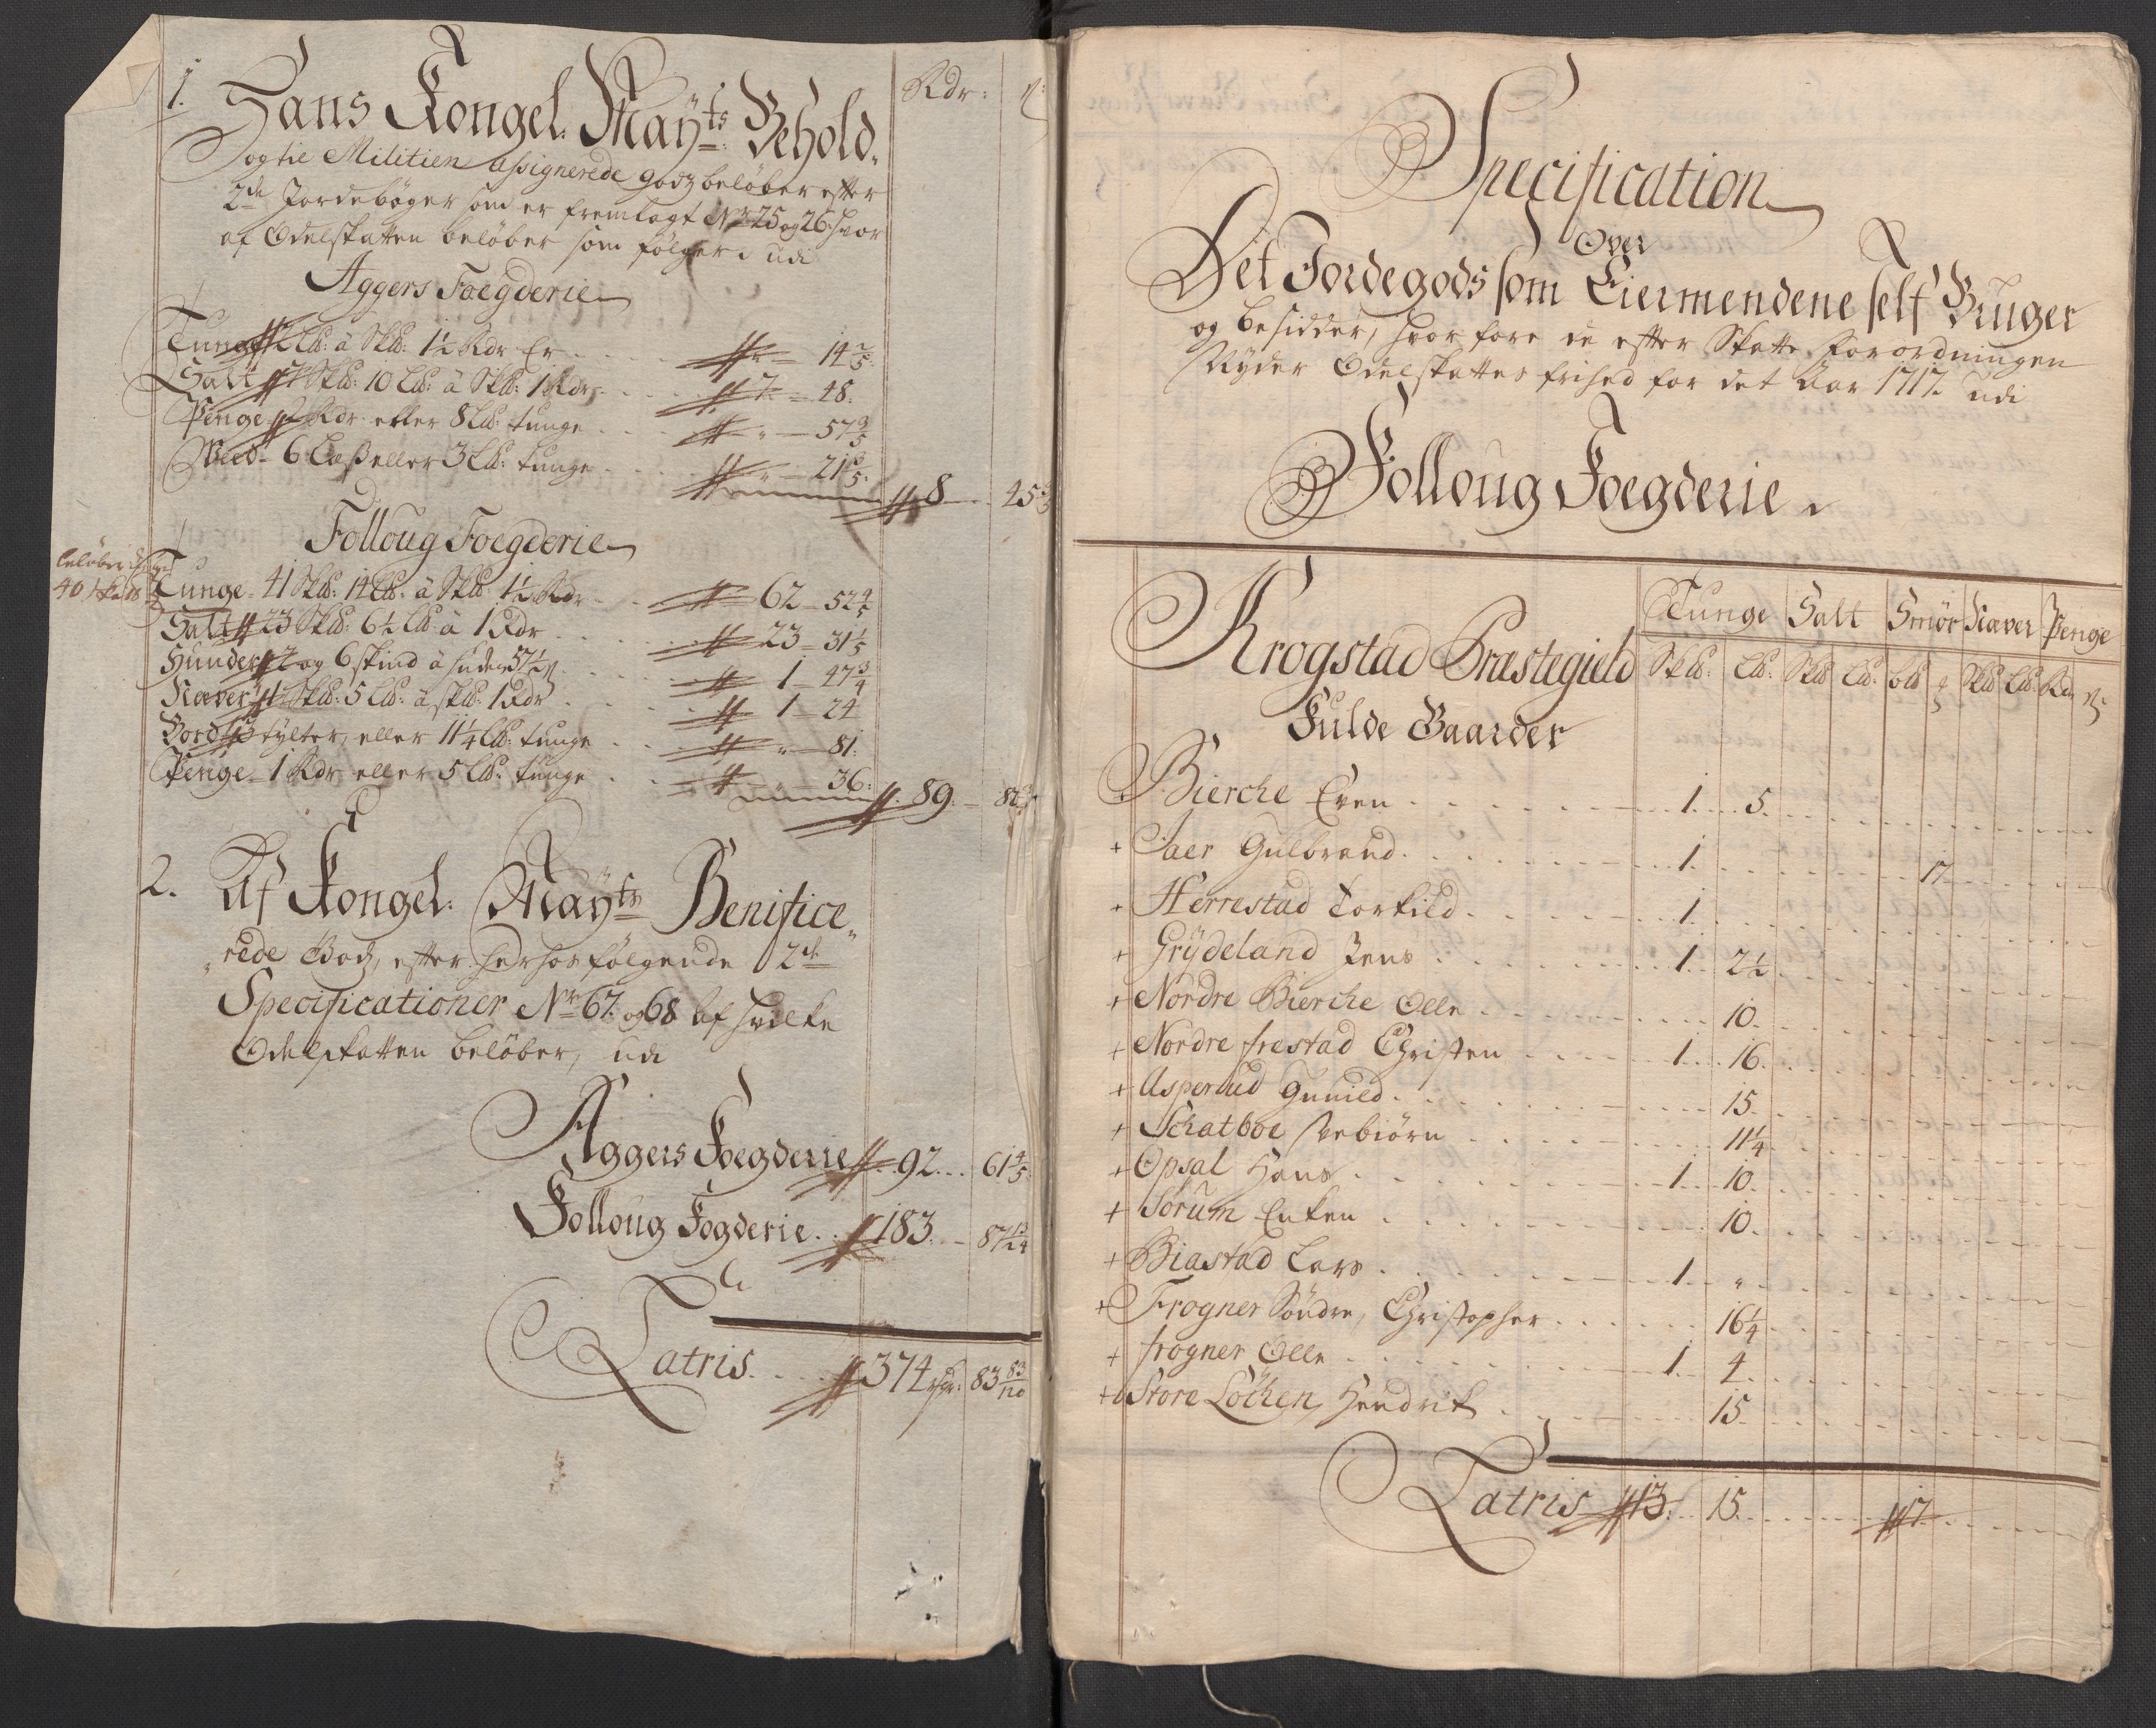 1. Hans Kongel: Mayts Behold, Rdr: ß
og til Militien assignerede godz beløber efter
2de Jordebøger som er fremlagt Nr 25 og 26 hvor
af Odelskatten beløber som følger, udi
Aggers Foegderie
Tunge 2 Lb: â Skb: 1½ Rdr Er - 14 2/5
Salt 7 Skb: 10 Lb: â Skb: 1 Rdr - 7 - 48.
Penge 2 Rdr eller 8 Lb: tunge - " - 57 3/5
Weed - 6 Læs eller 3 Lb: tunge - " - 21 3/5.
8 - 45 3/5
Folloug Foegderie
beløber
Tunge - 41 Skb: 14 Lb: â Skb: 1½ Rdr - 62 - 52 4/5
Salt 23 Skb: 6½ Lb: â 1 Rdr - 23 - 31 1/5
Huuder 2 og 6 skind â huden 57½ ß - 1 - 47 3/4
Næver 1 Skb: 5 Lb: â skb: 1 Rdr - 1 - 24
Bord 3 tylter, eller 11¼ Lb: tunge - " - 81.
Penge - 1 Rdr eller 5 Lb: tunge - " - 36:
89. -
2. Af Kongel: Mayts Benifice„
„rede Godz, efter herhos følgende 2de
Specificationer Nr 67. og 68 af hvilke
Odelskatten beløber, udi
Aggers Foegderie 92. . . 61 4/5
Folloug Fogderie . . 183. - 87 13/24
Latris. . . . 374 83 83/120
Specification
Over
Det Jordegods som Eiermendene self Bruger
og besidder, hvor fore de efter Skatte Forordningen
Nyder Odelskattes frihed for det Aar 1717. udi
Folloug Foegderie.
Tunge Salt Smør Næver Penge
Krogstad Præstegield Skb: Lb: Skb Lb: Skb Lb: Rdr ß
Fulde Gaarder
Bierche Even . . . 1. . . 5.
+ Jaer Gulbrand. . . . 1. . . . 17
+ Herrestad Torkild. . . . 1.
+ Grydeland Jens . . . 1. . 2½
+ Nordre Bierche Olle . . . 10.
+ Nordre frestad Christen . . . 1. . . 16.
+ Asperud Gunild. . . . 15.
+ Schatboe Vebiørn . . . 11¼
+ Opsal Hans . . . 1. . . 10.
+ Sørum Enken . . . 10.
+ Biastad Lars . . . 1. . . "
+ Frogner Søndre, Christopher . . . 16¼
+ frogner Olle . . . 1. . 4.
+ Store Løchen, Hendrik . . . 15.
Latris 13. . . 15. . . . 17.